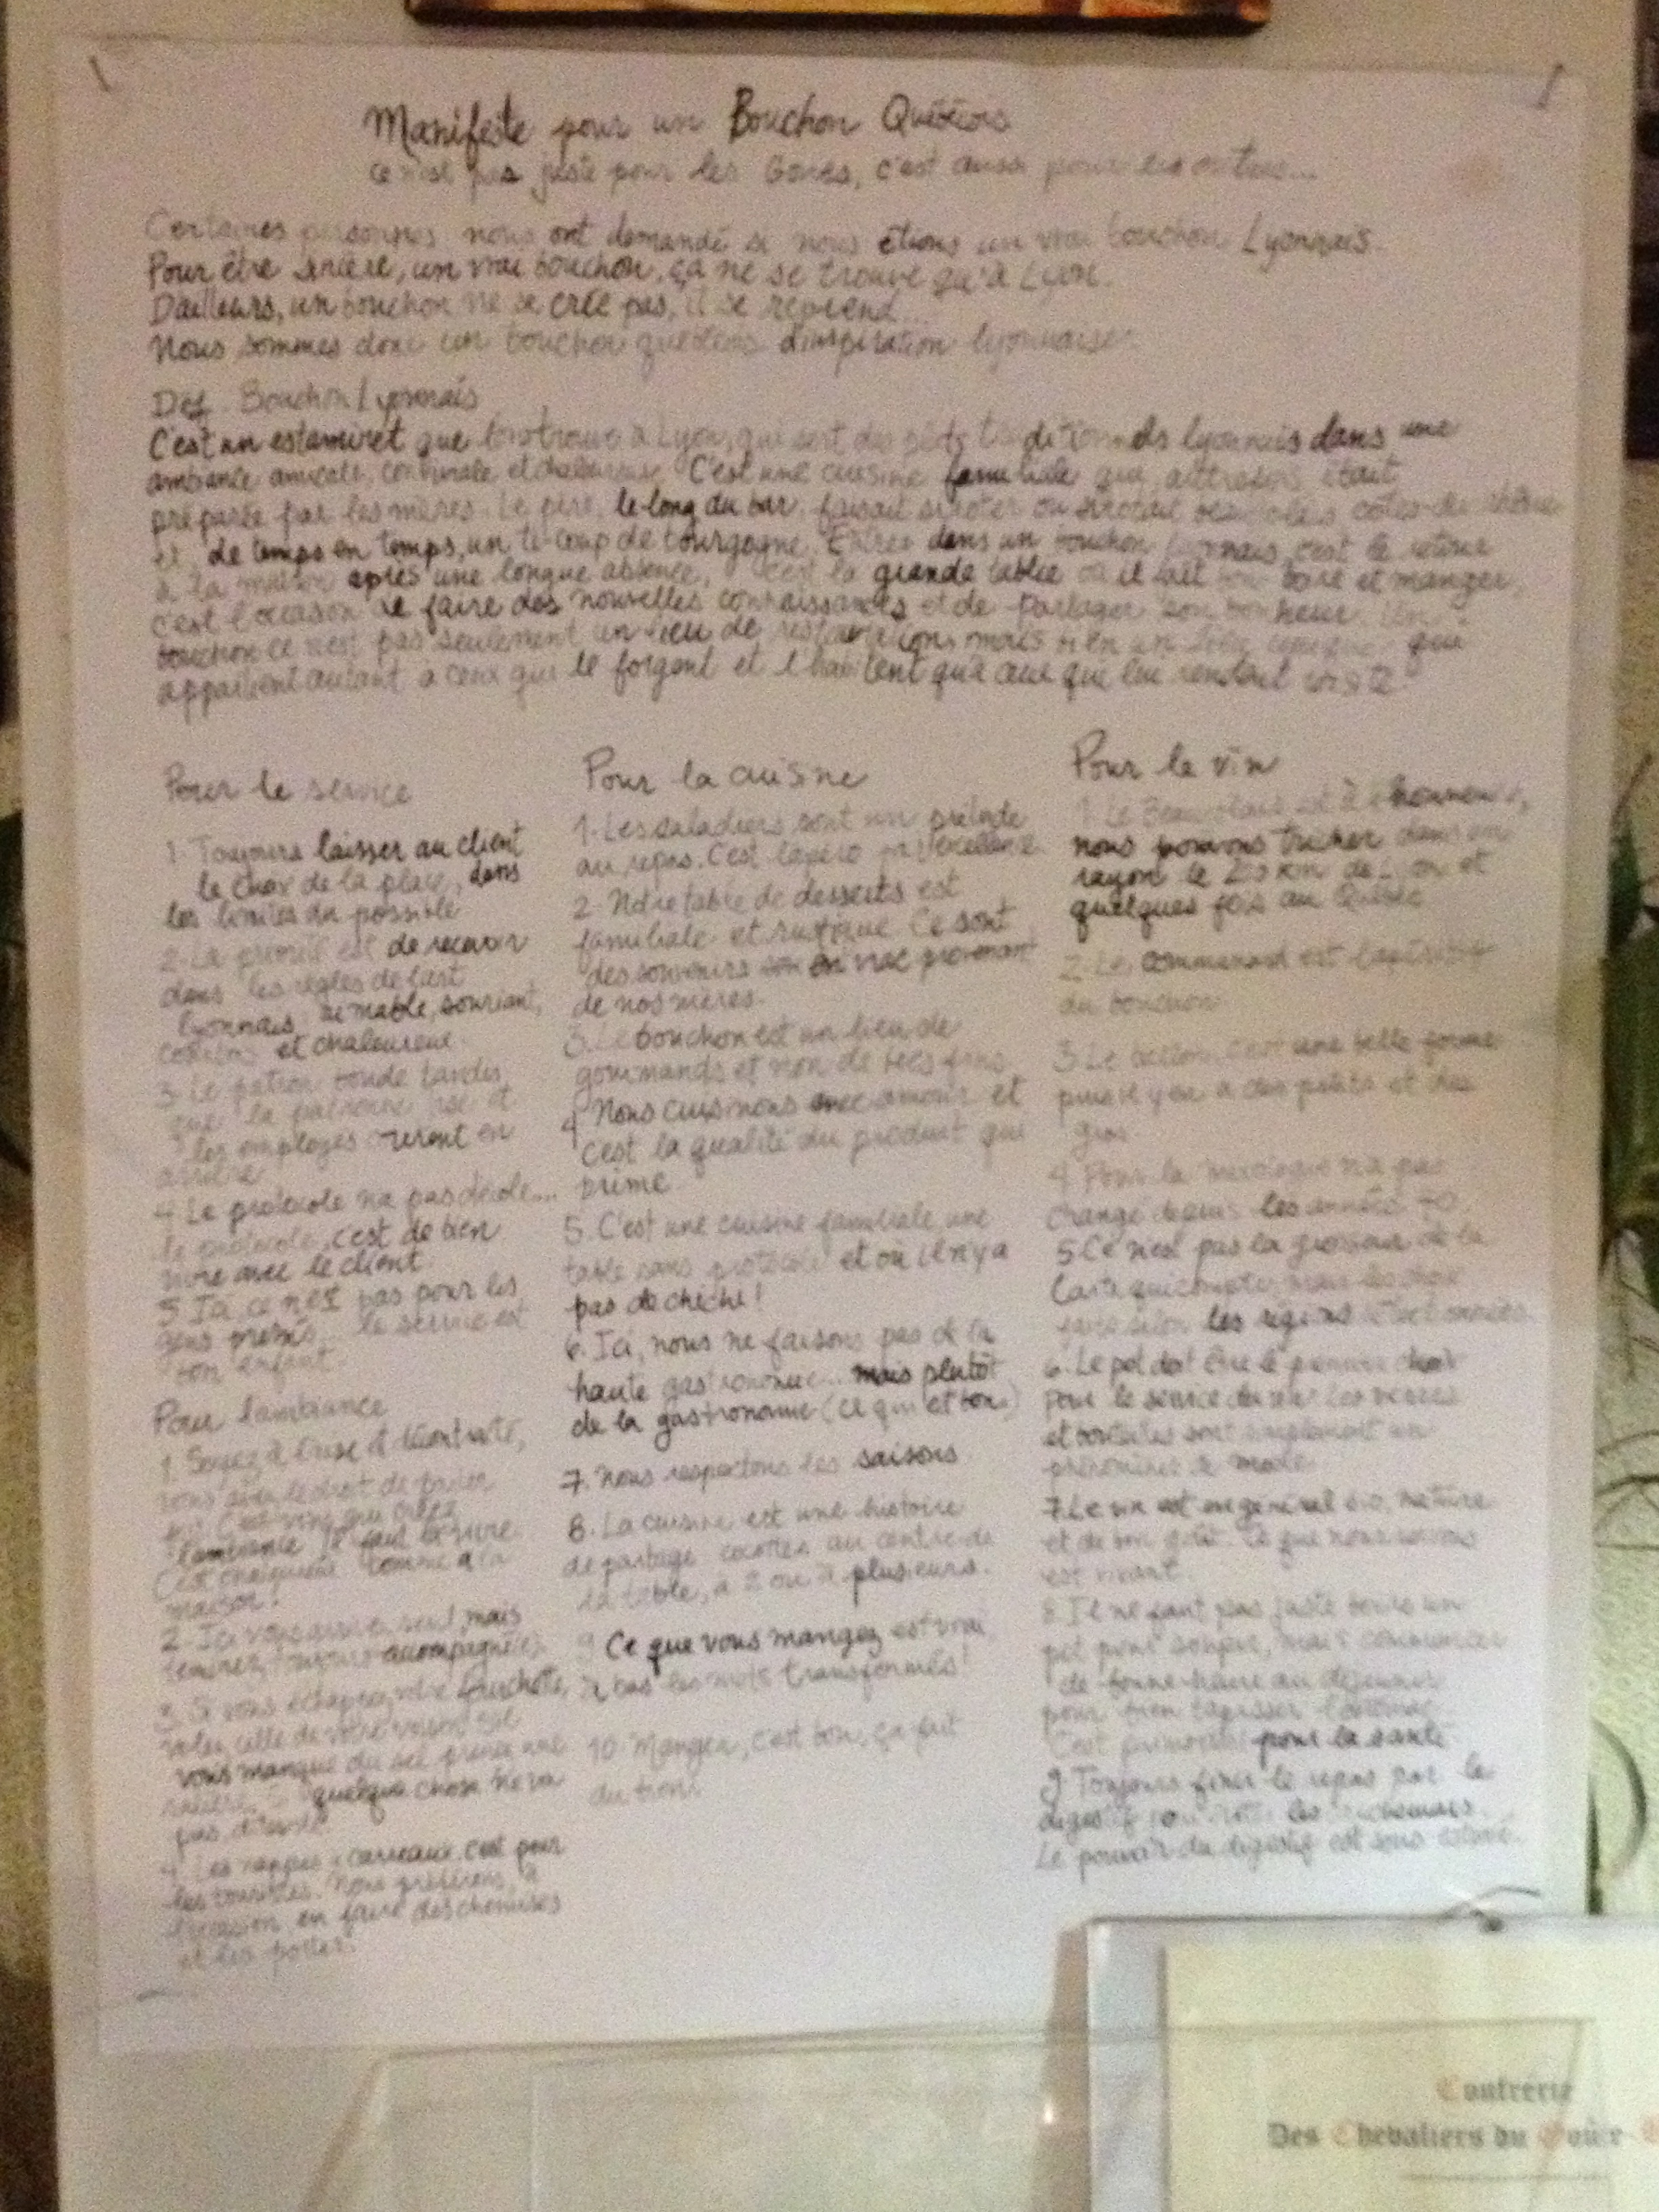 Manifeste pour un Bouchon Québécois
ce n'est pas juste pour les Gones, c'est aussi pour les autres...
Certaines personnes nous ont demandé si nous étions un vrai bouchon Lyonnais.
Pour être sincère, un vrai bouchon, ça ne se trouve qu'à Lyon.
D'ailleurs, un bouchon ne se crée pas, il se reprend...
Nous sommes donc un bouchon québécois d'inspiration lyonnaise.
Def. Bouchon Lyonnais
C'est un estaminet que l'on trouve à Lyon, qui sert des plats traditionnels lyonnais dans une
ambiance amicale, conviviale et chaleureuse. C'est une cuisine familiale qui, autrefois était
préparée par les mères. Le père, le long du bar, faisait siroter ou sirotait beaujolais, côtes-du-rhône
et, de temps en temps, un ti-coup de bourgogne. Entrer dans un bouchon lyonnais, c'est le retour
à la maison après une longue absence, c'est la grande tablée où il fait bon boire et manger,
c'est l'occasion de faire des nouvelles connaissances et de partager son bonheur. Un
bouchon ce n'est pas seulement un lieu de restauration, mais bien un qui
appartient autant à ceux qui le forgent et l'habitent qu'à ceux qui lui rendent visite
Pour le service
1. Toujours laisser au client
le choix de la place, dans
les limites du possible
2. La priorité est de recevoir
dans les règles de l'art
lyonnais, aimable, souriant,
courtois et chaleureux.
3. Le patron tandis
que la patronne et
les employés en
arrière
4. Le protocole n'a pas d'école...
le protocole, c'est de bien
vivre avec le client.
5. Ici ce n'est pas pour les
gens pressés, le service est
bon enfant.
Pour l'ambiance
1. Soyez à l'aise et décontracté,
vous avez le droit de parler
C'est vous qui créez
l'ambiance. Il faut
C'est comme à la
maison!
2. Ici vous arrivez seul, mais
toujours accompagné(e).
3. Si vous échappez votre fourchette,
volez celle de votre voisin. S'il
vous manque du sel, prenez une
quelque chose ne va
pas,
4. Les nappes à carreaux c'est pour
les touristes. Nous préférons, à
l'occasion en faire des chemises
et les porter.
Pour la cuisine
1. Les saladiers sont un prélude
au repas. C'est l'apéro par excellence.
2. Notre table de desserts est
familiale et rustique. Ce sont
des souvenirs en vrac provenant
de nos mères.
3. Le bouchon est un lieu de
gourmands et non de becs fins.
4. Nous cuisinons avec amour et
c'est la qualité du produit qui
prime.
5. C'est une cuisine familiale une
table sans protocole et où il n'y a
pas de chichi!
6. Ici, nous ne faisons pas de la
haute gastronomie... mais plutôt
de la gastronomie (ce qui est bon)
7. Nous respectons les saisons.
8. La cuisine est une histoire
de partage cocottes au centre de
la table, à 2 ou à plusieurs.
9. Ce que vous mangez est vrai.
À bas les mots transformés!
10. Mangez, c'est bon, ça fait
du bien.
Pour le vin
1. Le Beaujolais est à l'honneur,
nous pouvons tricher dans un
rayon de 200 km de Lyon et
quelques fois au Québec
2. Le communard est l'apéritif
du bouchon.
3. Le ballon c'est une belle forme
puis il y en a des petits et des
gros.
4. Pour la mixologie n'a pas
changé depuis les années
5. Ce n'est pas la grosseur de la
carte qui compte, mais les choix
faits selon les régions
6. Le pot doit être le premier choix
pour le service du vin. Les verres
et bouteilles sont simplement un
phénomène de mode.
7. Le vin est en général bio, nature
et de bon goût. Ce que nous buvons
est vivant.
8. Il ne faut pas juste boire un
pot pour souper, mais commencer
de bonne heure au déjeuner
pour bien tapisser l'estomac.
C'est primordial pour la santé.
9. Toujours finir le repas par le
digestif
Le pouvoir du digestif est sous estimé.
Confrerie
Des Chevaliers du